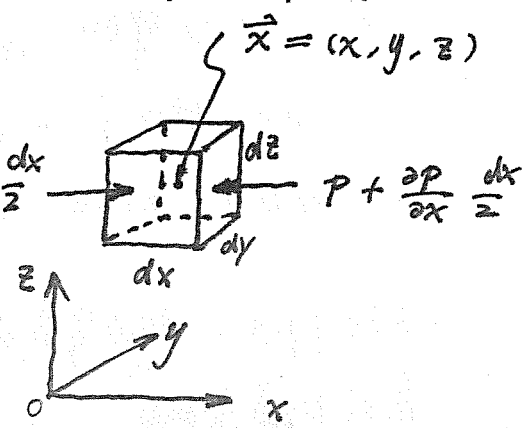 x⃗ = (x, y, z)
dz
dx/2
p + ∂p/∂x dx/2
dy
dx
z
y
o
x